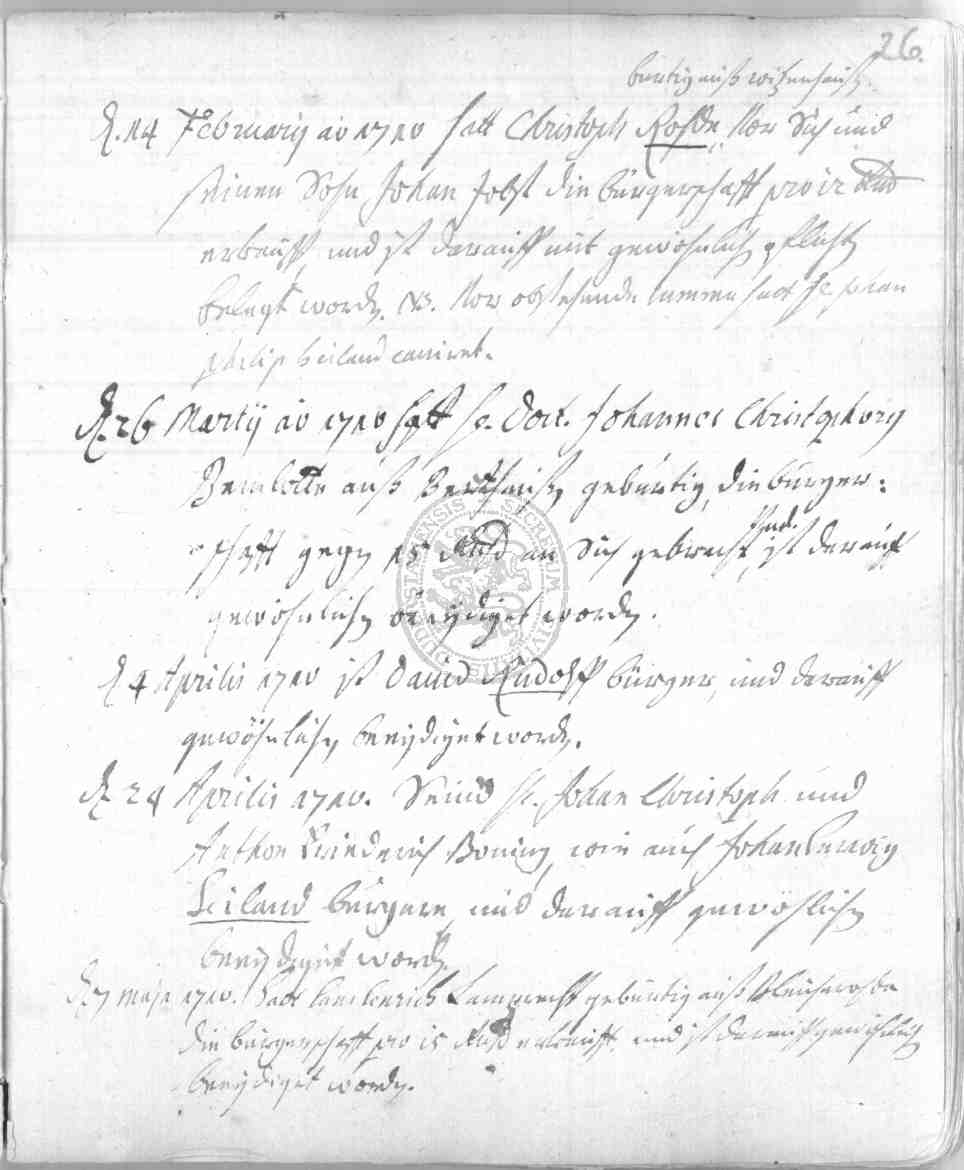 26.
bürtig auß witzenhauß.
d. 14 February ao 1710 hatt Christoph Rohde vor Sich und
seinen Sohn Johan Jobst die bürgerschafft pro 12
erkaufft und ist darauff mit gewöhnlich pflicht
belegt word. NB. vor obstehende summa hatt H. Johan
Philip heiland caviret.
d. 26 Martij ao 1710 hatt H. Doct. Johannes Christophorg
auß gebürtig, die bürger:
schafft gegen 15 an Sich gebracht, Und. ist darauf
gewöhnlich beeÿdiget word.
d. 4 Aprilis 1710 ist David Rudolff bürger, und darauff
gewöhnlich beeÿdiget word.
d. 24 Aprilis 1710. Seind H. Johan Christoph und
Anthon Friederich Boning, wie auch Johan
Heiland bürgere, und darauff gewöhlich
beeÿdiget word.
d. 7 Maji 1710. hatt henrich Lamprecht gebürtig auß
die bürgerschafft pro 15 erkaufft und ist darauff gewöhnlich
beeÿdiget word.